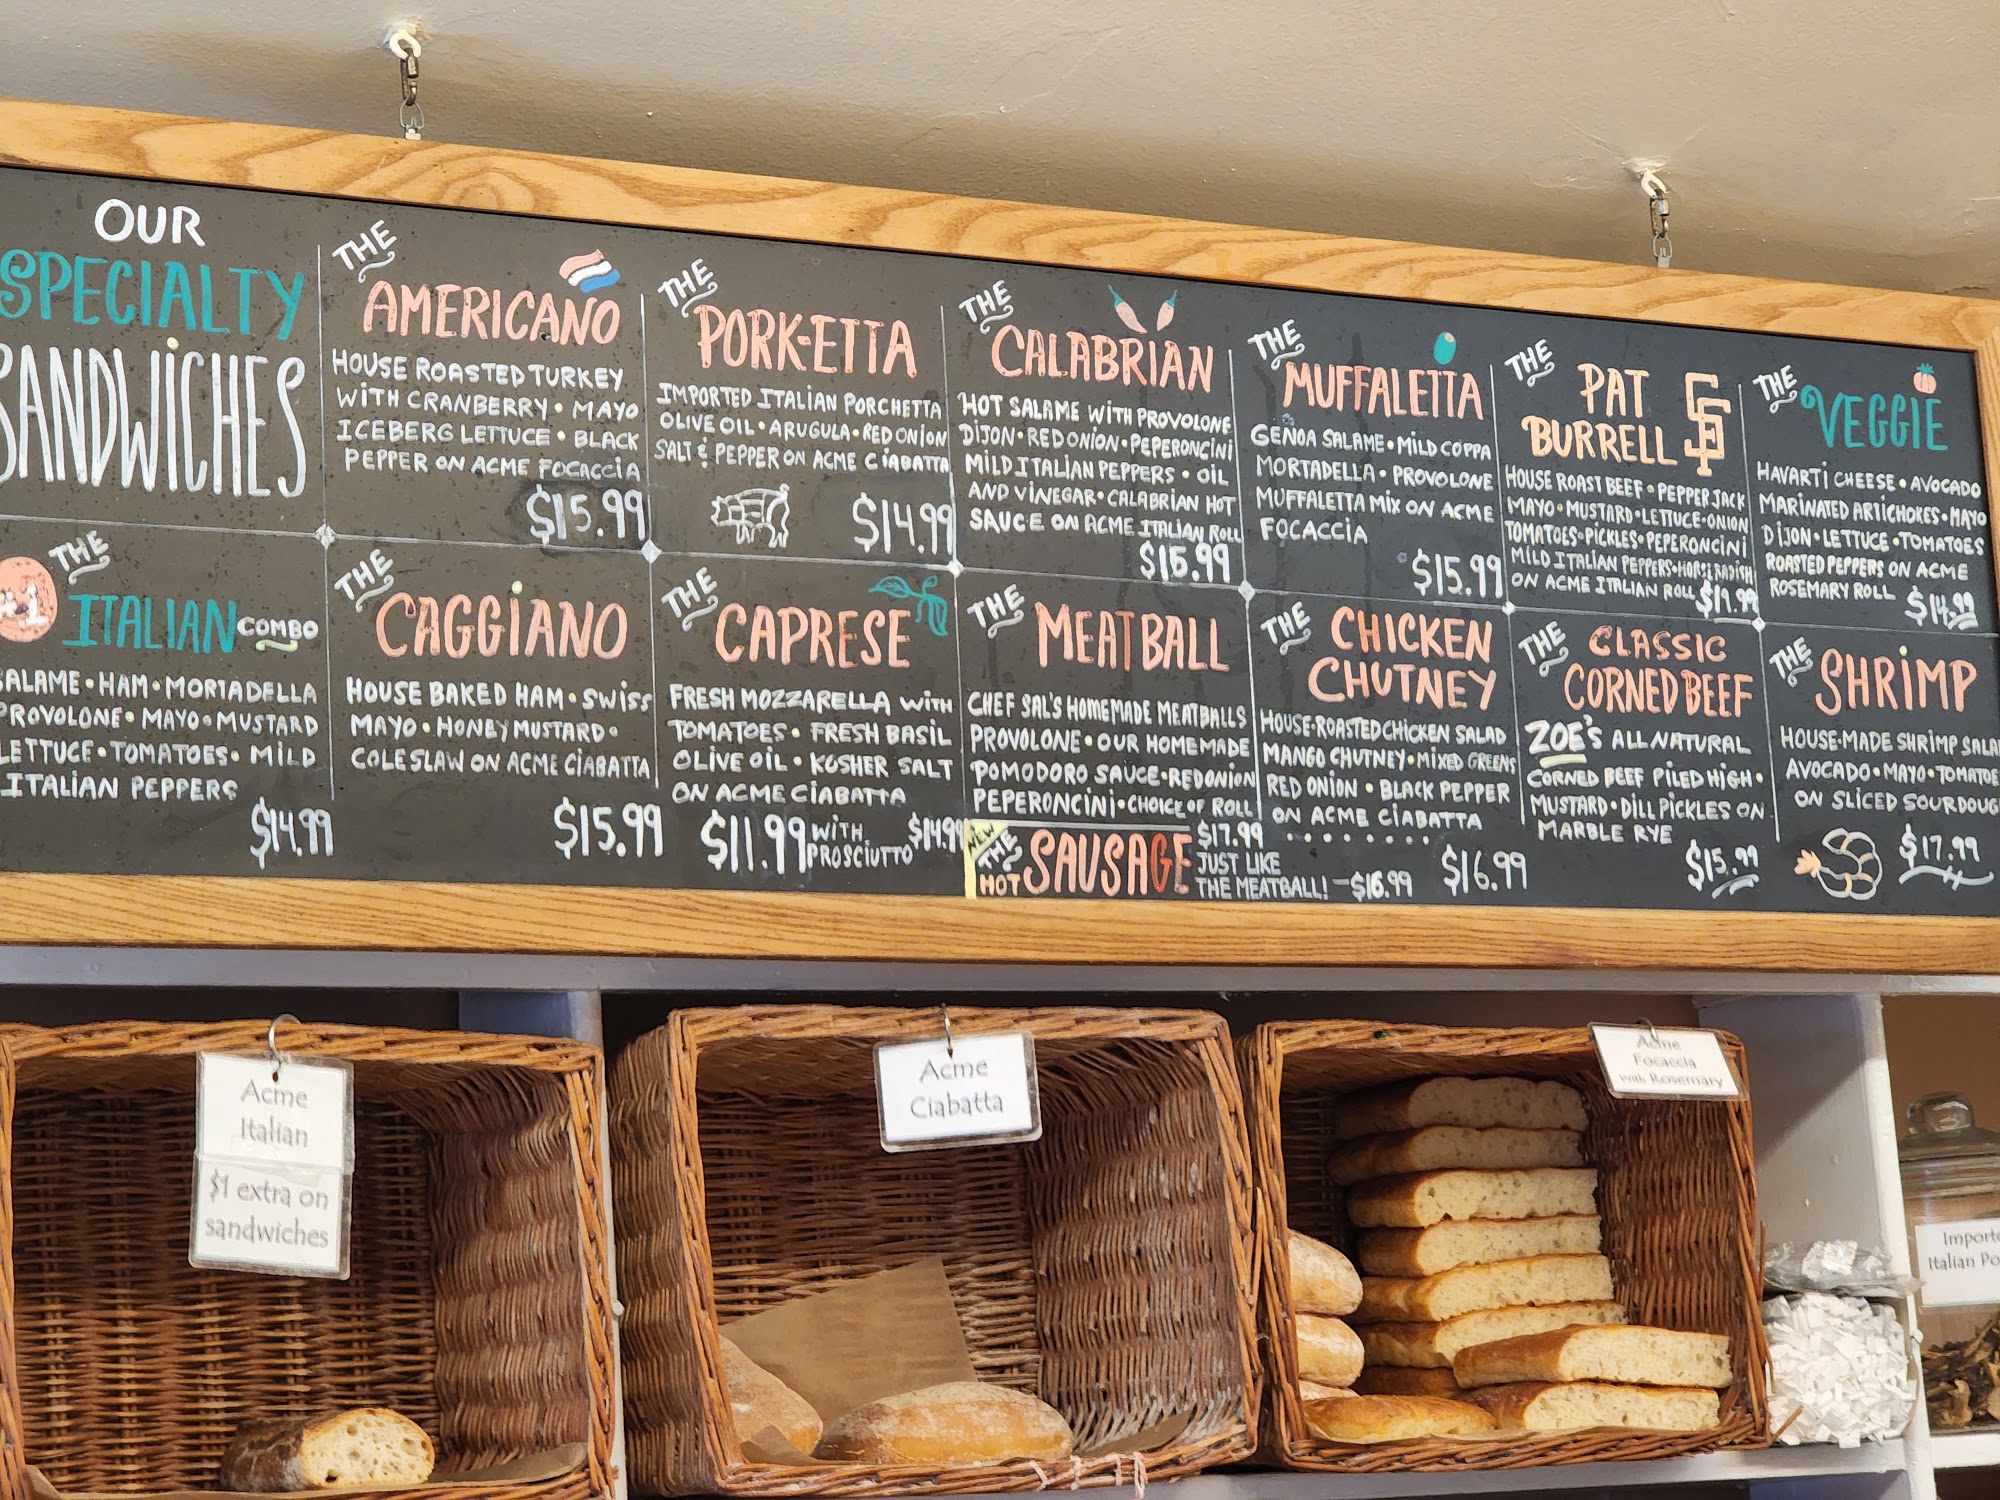 OUR
SPECIALTY
SANDWICHES
THE
AMERICANO
HOUSE ROASTED TURKEY
WITH CRANBERRY • MAYO
ICEBERG LETTUCE • BLACK
PEPPER ON ACME FOCACCIA
$15.99
THE
PORK-ETTA
IMPORTED ITALIAN PORCHETTA
OLIVE OIL • ARUGULA • RED ONION
SALT & PEPPER ON ACME CIABATTA
$14.99
THE
CALABRIAN
HOT SALAME WITH PROVOLONE
DIJON • RED ONION • PEPERONCINI
MILD ITALIAN PEPPERS • OIL
AND VINEGAR • CALABRIAN HOT
SAUCE ON ACME ITALIAN ROLL
$15.99
THE
MUFFALETTA
GENOA SALAME • MILD COPPA
MORTADELLA • PROVOLONE
MUFFALETTA MIX ON ACME
FOCACCIA
$15.99
THE
PAT
BURRELL SF
HOUSE ROAST BEEF • PEPPER JACK
MAYO • MUSTARD • LETTUCE • ONION
TOMATOES • PICKLES • PEPERONCINI
MILD ITALIAN PEPPERS • HORSERADISH
ON ACME ITALIAN ROLL
THE
VEGGIE
HAVARTI CHEESE • AVOCADO
MARINATED ARTICHOKES • MAYO
DIJON • LETTUCE • TOMATOES
ROASTED PEPPERS ON ACME
ROSEMARY ROLL
$14.99
#1
THE
ITALIAN COMBO
SALAME • HAM • MORTADELLA
PROVOLONE • MAYO • MUSTARD
LETTUCE • TOMATOES • MILD
ITALIAN PEPPERS
$14.99
THE
CAGGIANO
HOUSE BAKED HAM • SWISS
MAYO • HONEY MUSTARD •
COLESLAW ON ACME CIABATTA
$15.99
THE
CAPRESE
FRESH MOZZARELLA WITH
TOMATOES • FRESH BASIL
OLIVE OIL • KOSHER SALT
ON ACME CIABATTA
$11.99 WITH PROSCIUTTO $14.99
THE
MEATBALL
CHEF SAL'S HOMEMADE MEATBALLS
PROVOLONE • OUR HOMEMADE
POMODORO SAUCE • RED ONION
PEPERONCINI • CHOICE OF ROLL
$17.99
NEW
THE
HOT SAUSAGE
JUST LIKE
THE MEATBALL! — $16.99
THE
CHICKEN
CHUTNEY
HOUSE-ROASTED CHICKEN SALAD
MANGO CHUTNEY • MIXED GREENS
RED ONION • BLACK PEPPER
ON ACME CIABATTA
$16.99
THE
CLASSIC
CORNED BEEF
ZOE'S ALL NATURAL
CORNED BEEF PILED HIGH •
MUSTARD • DILL PICKLES ON
MARBLE RYE
$15.99
THE
SHRIMP
HOUSE-MADE SHRIMP SALA
AVOCADO • MAYO • TOMATOE
ON SLICED SOURDOUG
$17.99
Acme
Italian
$1 extra on
sandwiches
Acme
Ciabatta
Acme
Focaccia
with Rosemary
Importe
Italian Po